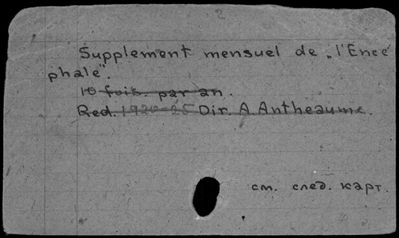 2
Supplement mensuel de „l'Encé
phale".
10 fois par an.
Red. 1920-25 Dir. A. Antheaume.
см. след. карт.